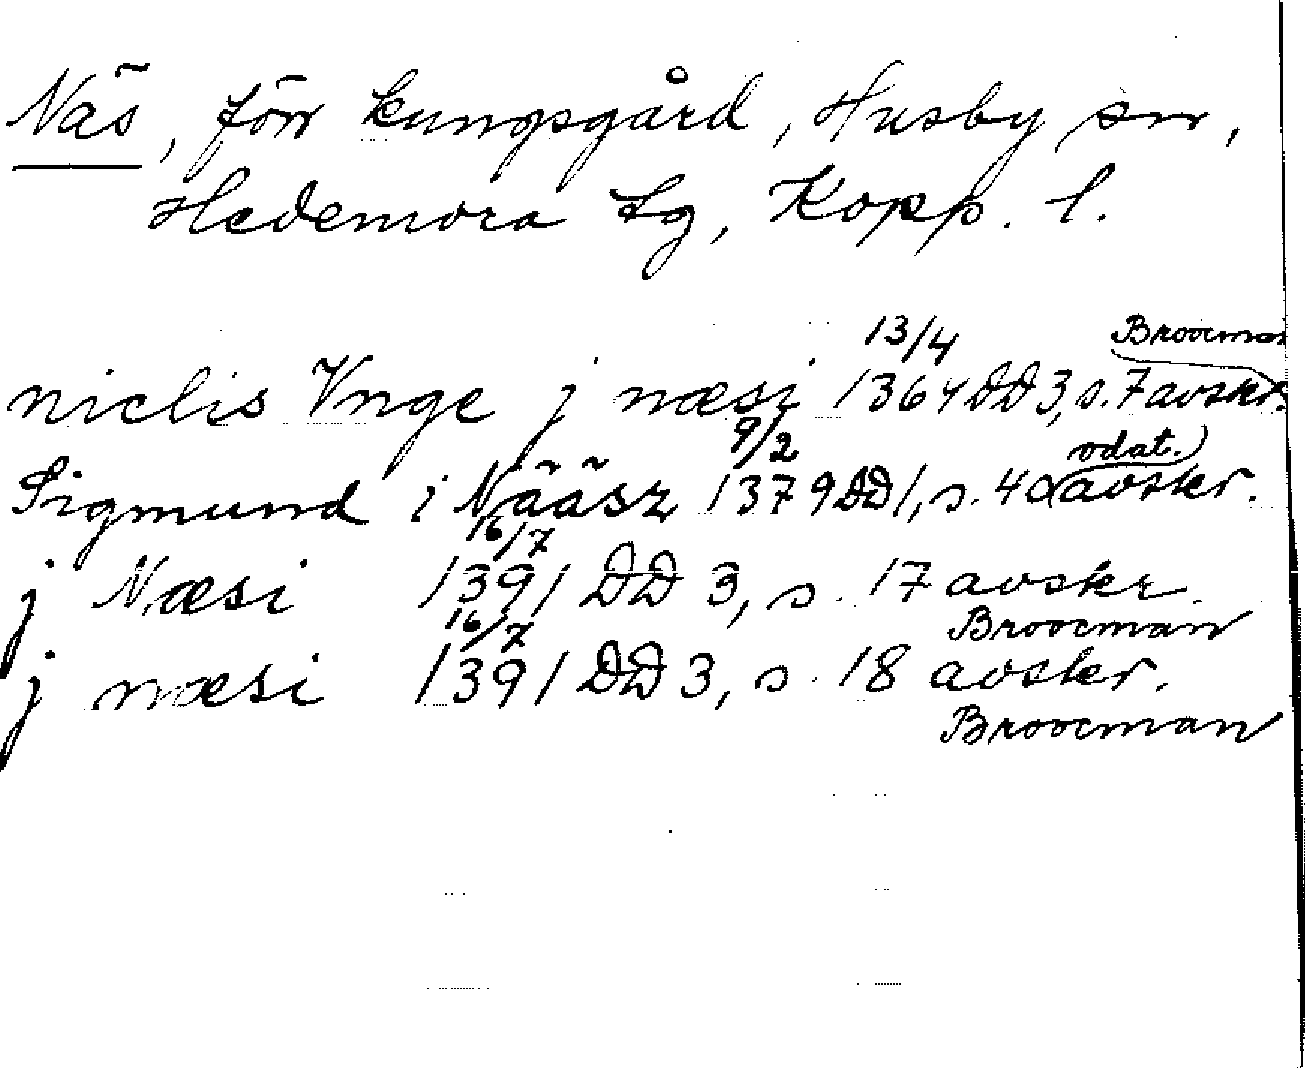 Näs, förr kungsgård, Husby sn,
Hedemora tg, Kopp. l.
13/4 Broocman
niclis Vnge j næsi 1364 DD 3, s. 7 avskr.
9/2 odat.
Sigmund i Nääsz 1379 DD 1, s. 40 avskr.
16/7
j Næsi 1391 DD 3, s. 17 avskr.
Broocman
16/7
j næsi 1391 DD 3, s. 18 avskr.
Broocman